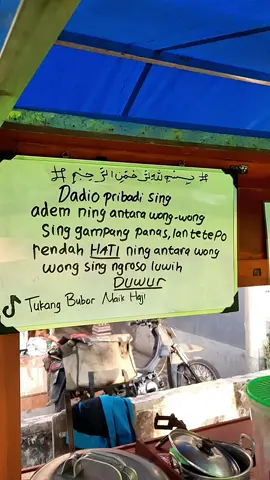 # بسم الله الرحمن الرحيم #
Dadio pribadi sing
adem ning antara wong-wong
sing gampang panas, lan tetepo
rendah HATI ning antara wong
wong sing ngroso luwih
DUWUR
Tukang Bubor Naik Haji